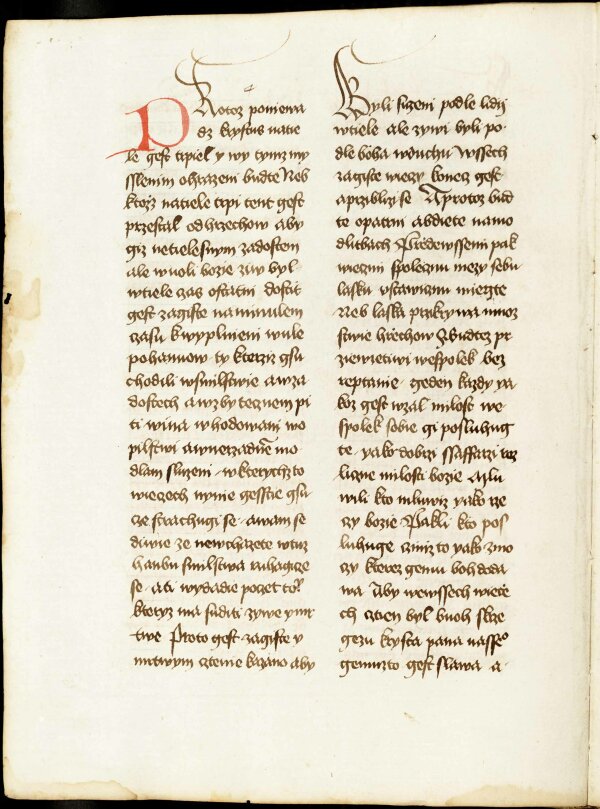 PRotoz poniewa
dz krystus natie
le gest trpiel y wy tymz my
sslenim ohrazeni budte Neb
ktoz natiele trpi tent gest
przestal od hrzechow aby
giz netielesnym zadostem
ale wuoli bozie ziw byl
wtiele czas ostatni dosti
gest zagiste naminulem
czasu kwyplnieni wule
pohanuow ty kterziz gsu
chodili wsmilstwie a wza
dostech awzbytecznem pi
ti wina whodowani wo
pilstwi awnerzadne mo
dlam sluzeni wkterychzto
wiecech nynie gesstie gsu
cze strachugi se awam se
diwie ze newchazete wtuz
hanbu smilstwa ruhagicze
se ati wydadie poczet to
kteryz ma suditi zywe y mr
twe Proto gest zagiste y
mrtwym cztenie kazano aby
Abyli suzeni podle lidij
wtiele ale zywi byli po
dle boha wduchu Wssech
zagiste wiecy konecz gest
aprzibliz se Aprotoz bud
te opatrni abdiete namo
dlitbach Przedewssemi pak
wiecmi spolecznu mezy sebu
lasku vstawiznu miegte
Neb laska przikrywa mnoz
stwie hrechow Zbudtez pr
ziewietiwi wespolek bez
reptanie geden kazdy ya
koz gest wzal milost we
spolek sobie gi posluhug
te yako dobrzi ssaffarzi roz
liczne milosti bozie Mlu
wili kto mluwiz yako rze
czy bozie Pakli kto pos
luhuge czniz to yako z mo
czy kterez gemu boh doda
wa Aby wewssech wiece
ch cztien byl buoh skrze
gezu krysta pana nasse
gemuzto gest slawa a